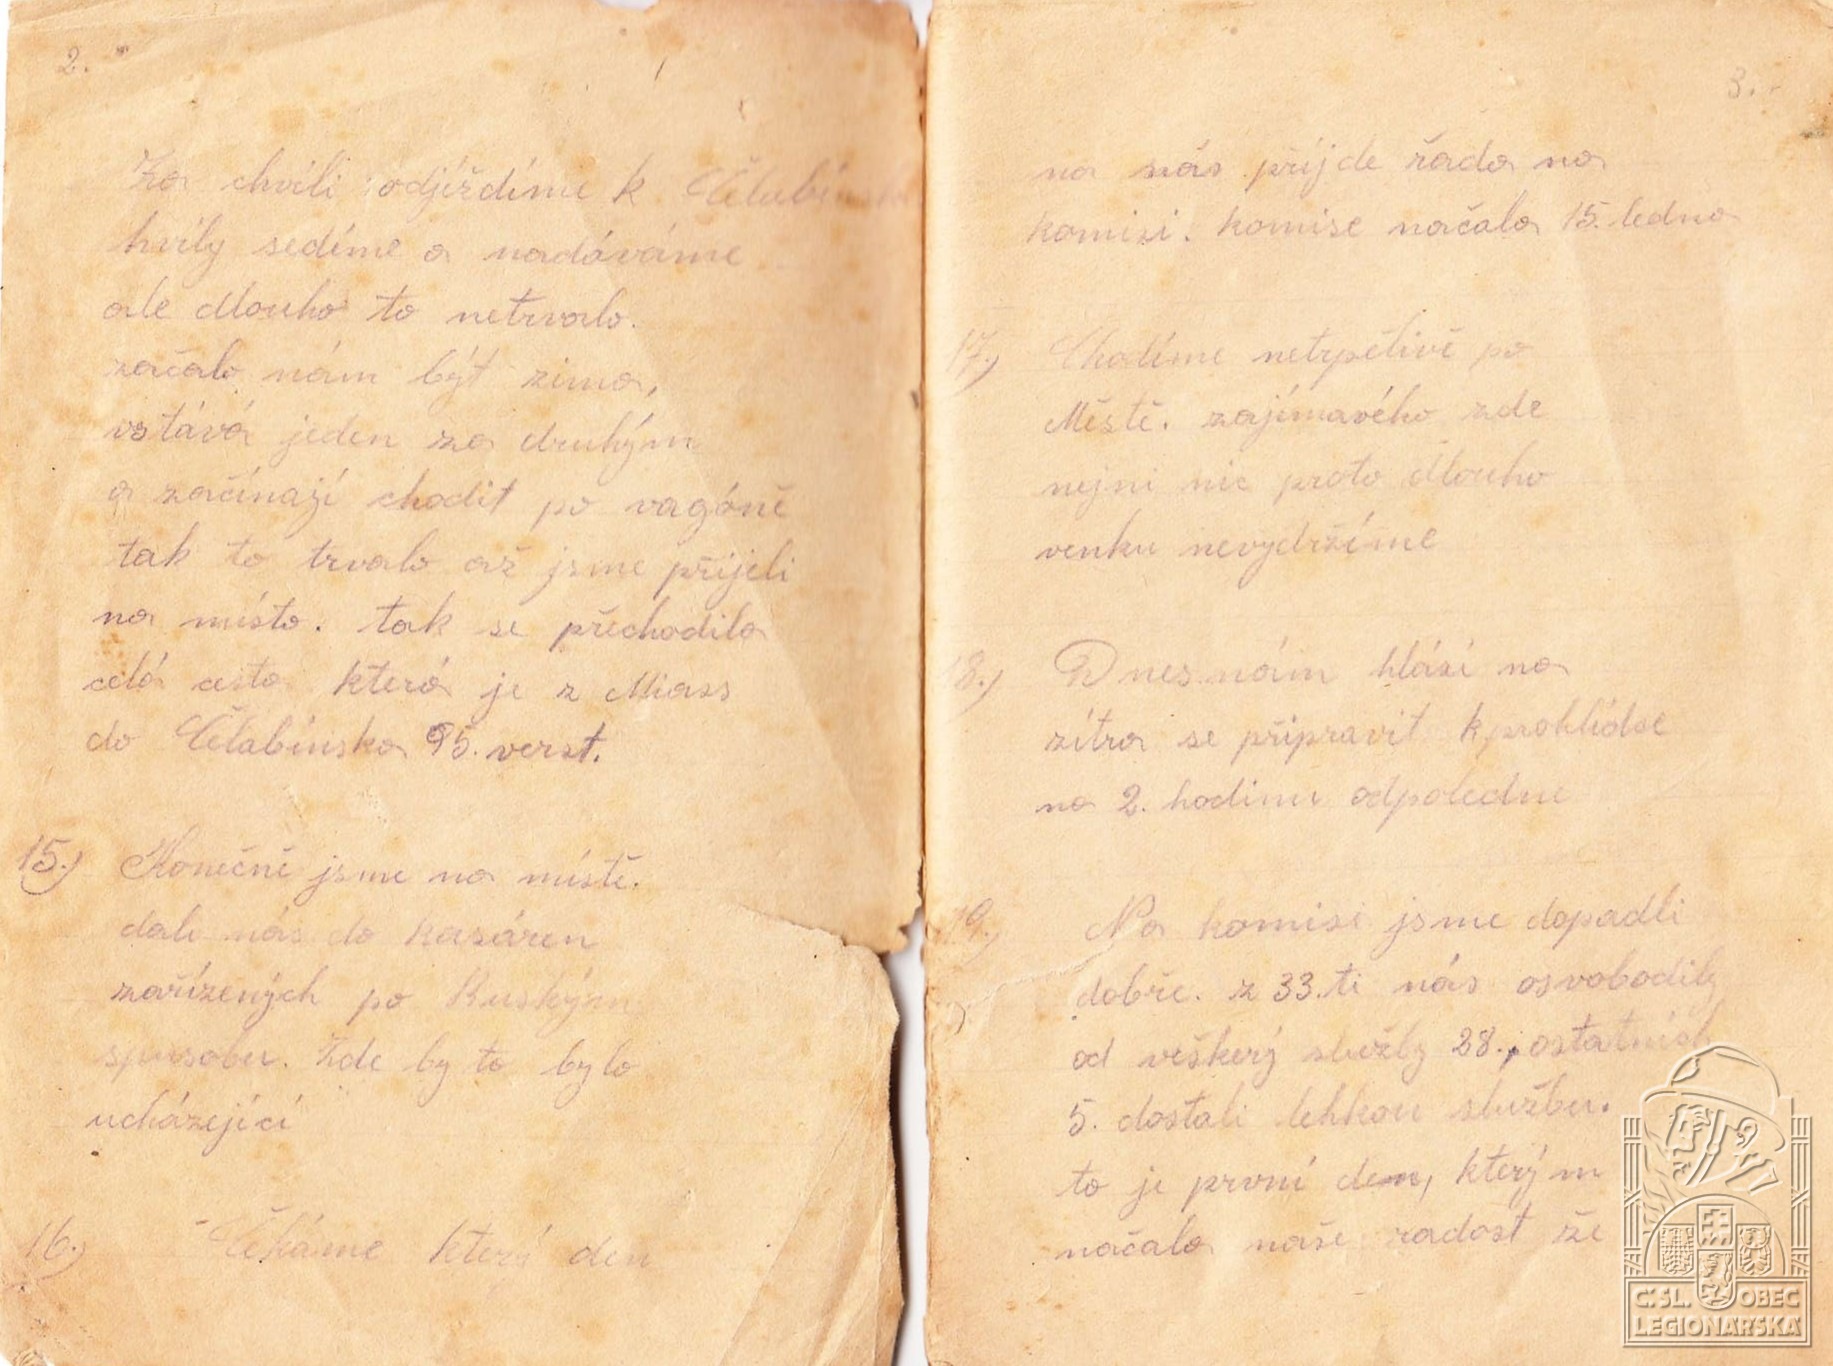 2.
Za chvíli odjíždíme k Čelabínsku
hvíly sedíme a nadáváme
ale dlouho to netrvalo.
začalo nám být zima,
vstává jeden za druhým
a začínají chodit po vagóně
tak to trvalo až jsme přijeli
na místo. tak se přechodila
celá cesta která je z Miass
do Čelabínska 95. verst.
15.) Konečně jsme na místě.
dali nás do kasáren
zařízených po Ruským
spusobu. Zde by to bylo
ucházející
16.) Čekáme který den
3.
na nás příjde řada na
komisi. komise načala 15. ledna
17.) Chodíme netrpělivě po
Městě. zajímavého zde
nejni nic proto dlouho
venku nevydržíme
18.) Dnes nám hlásí na
zítra se připravit k prohlídse
na 2. hodinu odpoledne
19.) Na komisi jsme dopadli
dobře. z 33.ti nás osvobodily
od veškerý služby 28., ostatních
5. dostali lehkou službu.
to je první den, kterým
načala naše radost že
Č. SL. OBEC
LEGIONÁŘSKÁ